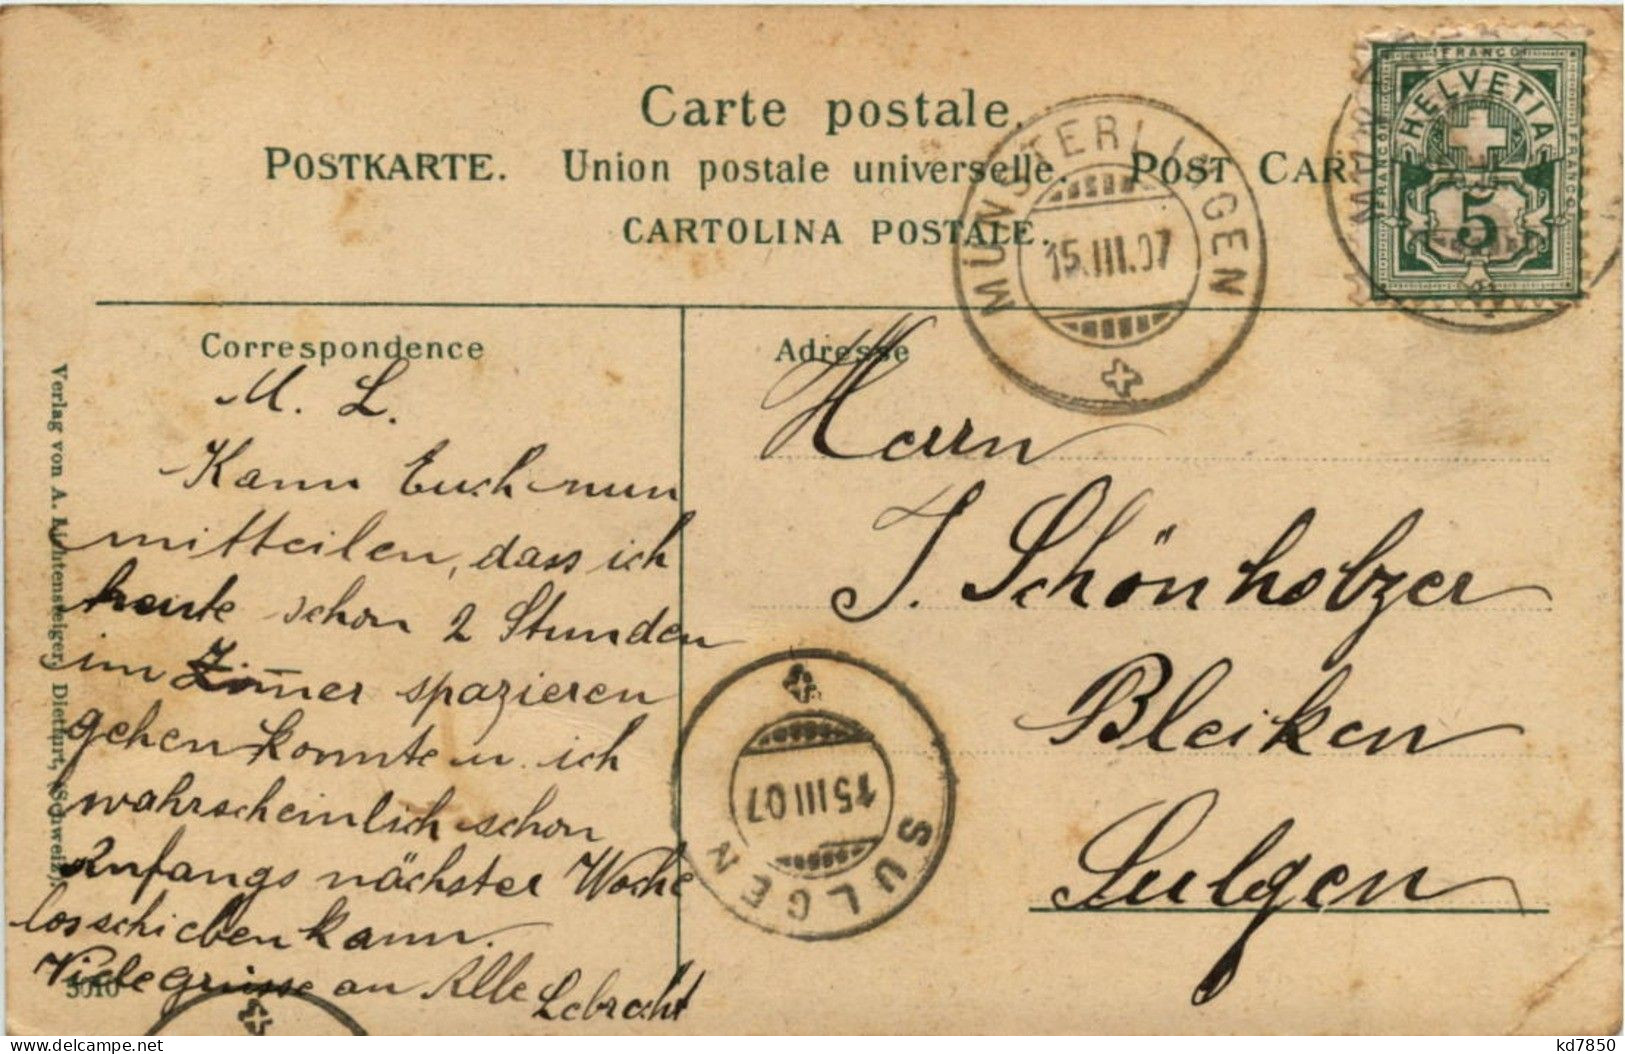 Carte postale.
POSTKARTE. Union postale universelle. POST CAR
CARTOLINA POSTALE.
FRANCO
HELVETIA
FRANCO
FRANCO
5
MÜNSTERLINGEN
15.III.07
Correspondence
M. L.
Kann Euch nun
mitteilen, dass ich
heute schon 2 Stunden
im Zim̄er spazieren
gehen konnte u. ich
wahrscheinlich schon
Anfangs nächster Woche
losschieben kann.
Viele grüsse an Alle
Lebrecht
Adresse
Herrn
J. Schönholzer
Bleiken
Sulgen
SULGEN
15 III 07
Verlag von A. Lichtensteiger, Dietfurt, (Schweiz).
5010
delcampe.net
kd7850